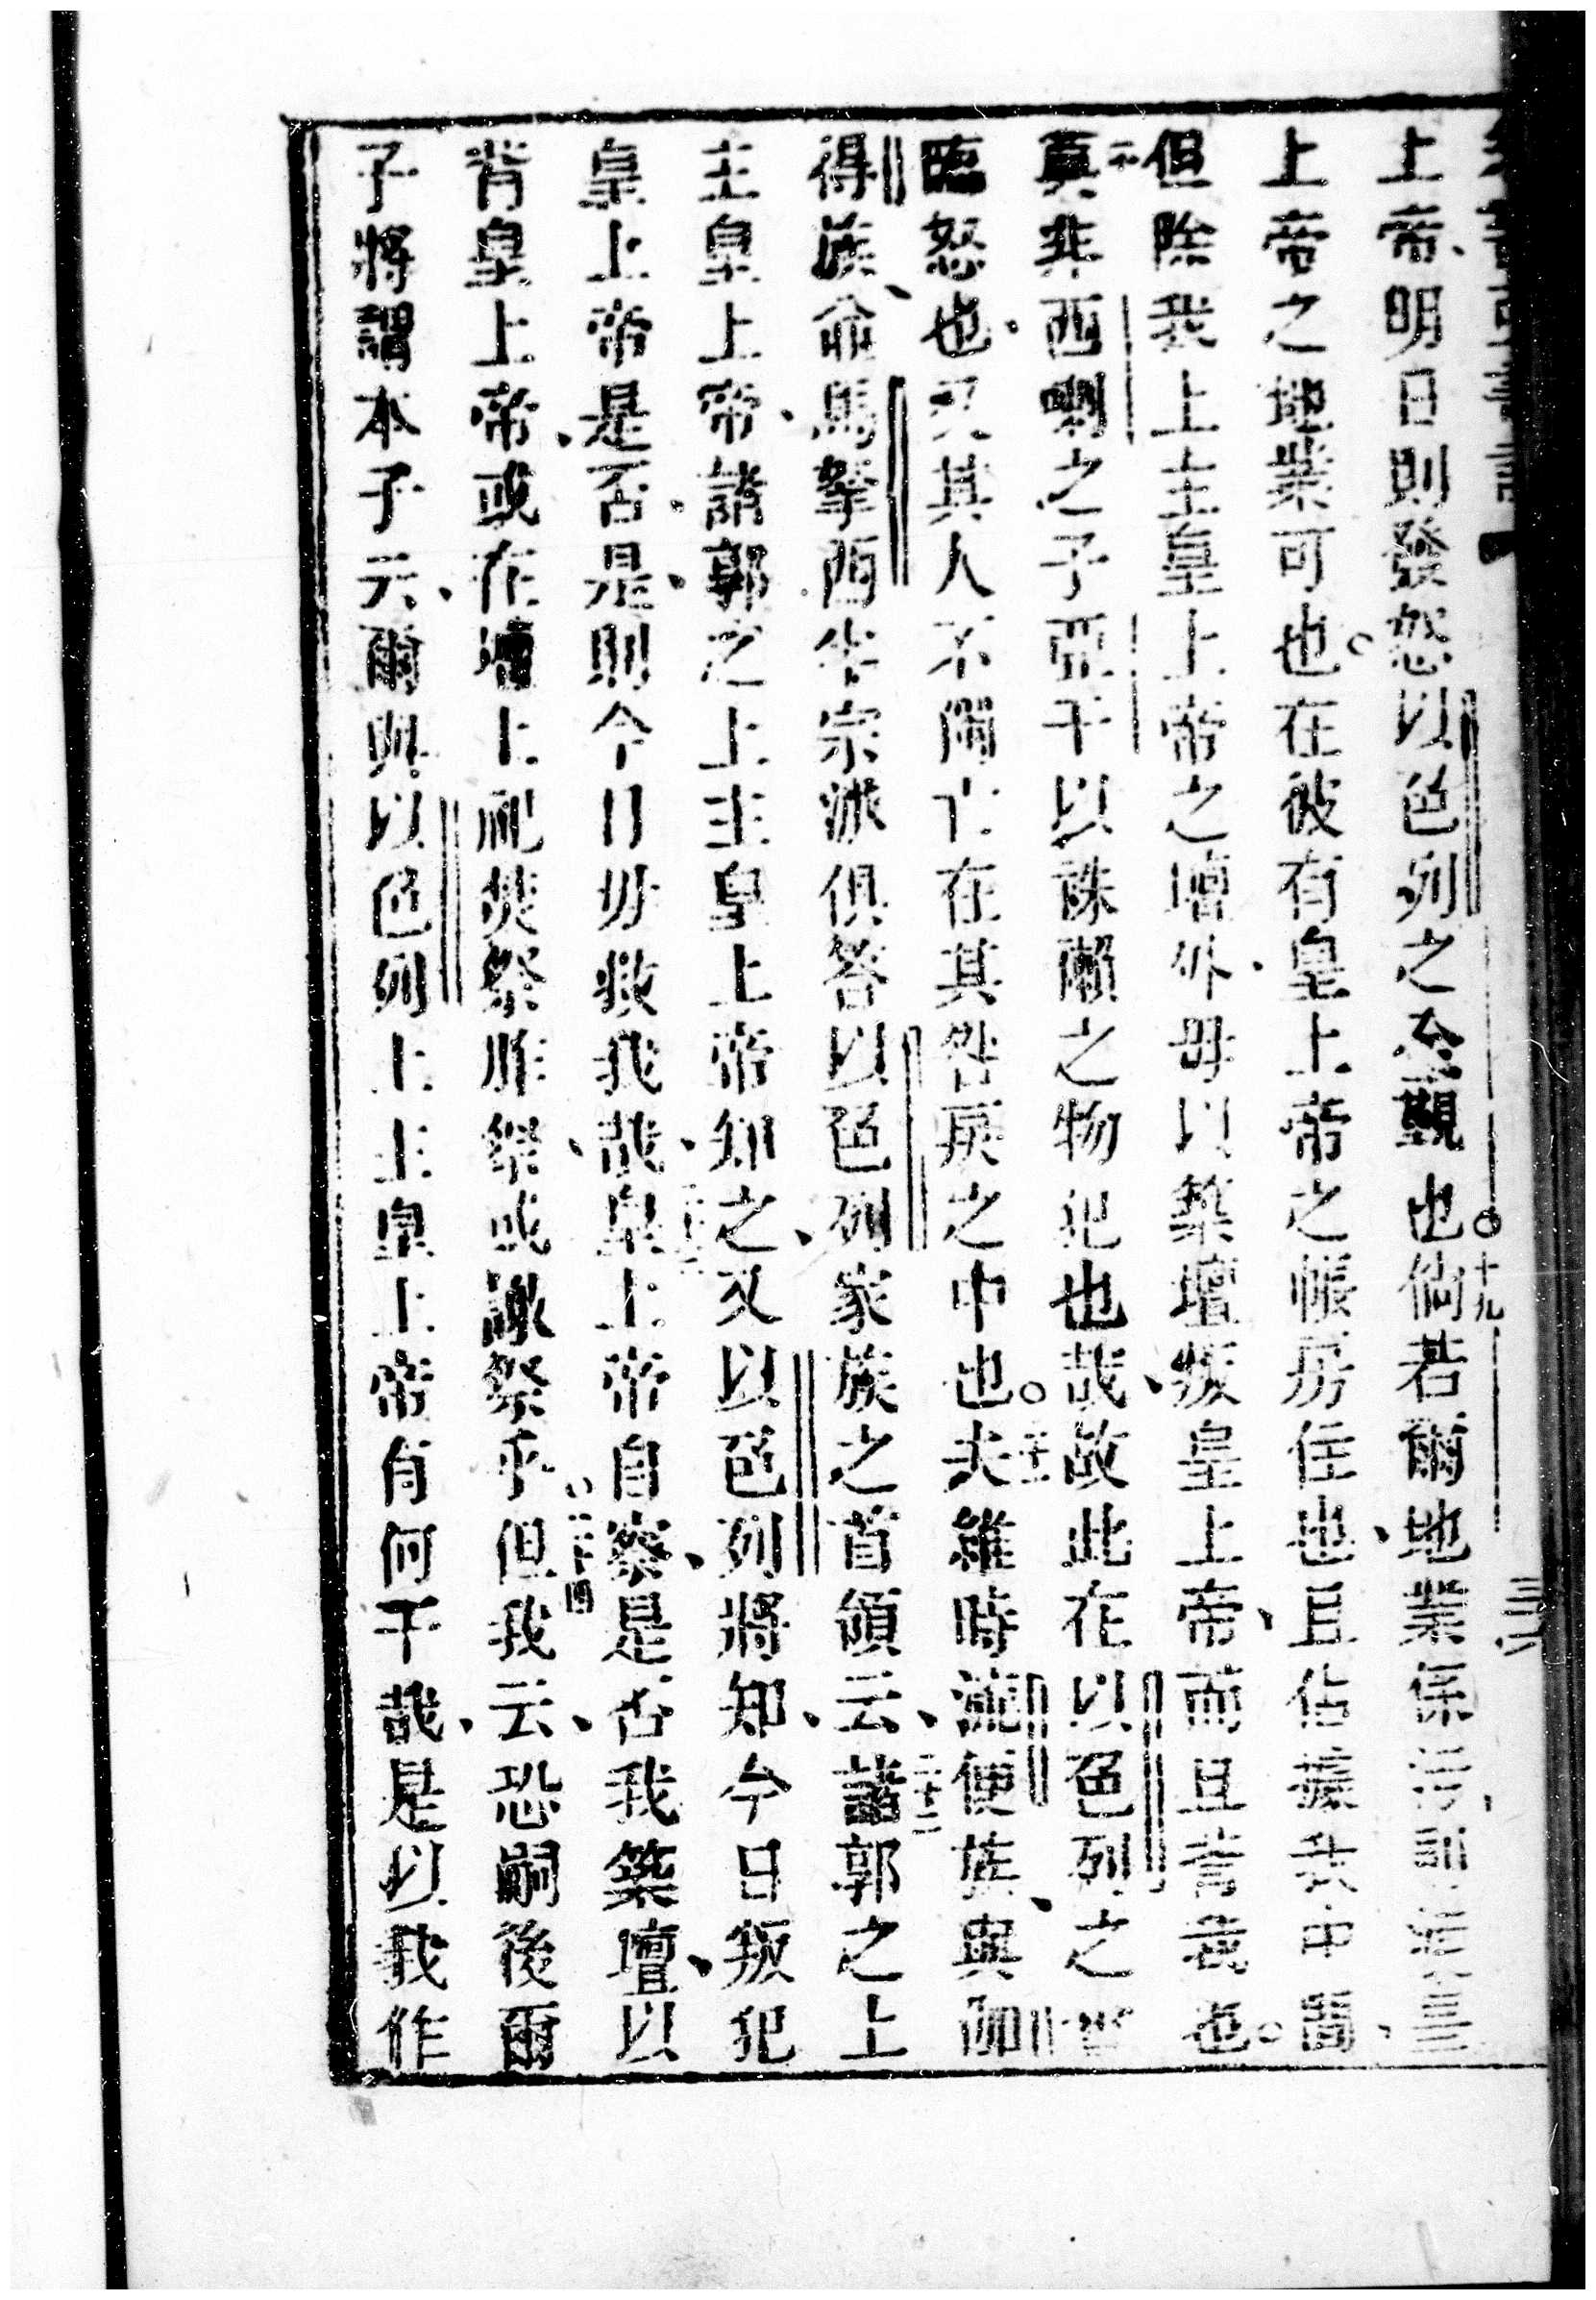 上帝、明日則發怒以色列之全觀也。十九倘若爾地業係污
上帝之地業可也。在彼有皇上帝之帳房住也、且佔據我中間、
但除我上主皇上帝之壇外、毋以築壇叛皇上帝、而且害我也。
二十真非西喇之子亞干以誅賴之物犯也哉、故此在以色列之
臨怒也、又其人不獨亡在其咎戾之中也。二十一夫維時流便族、與伽
得族、並馬拿西半宗派俱答以色列家族之首領云、二十二諸郭之上
主皇上帝、諸郭之上主皇上帝知之、又以色列將知、今日叛犯
皇上帝是否、是、則今日毋救我哉、二十三皇上帝自察、是否我築壇、以
背皇上帝、或在壇上祀焚祭胙祭、或謝祭乎、二十四但我云、恐嗣後爾
子將謂本子云、爾與以色列上主皇上帝有何干哉、是以我作